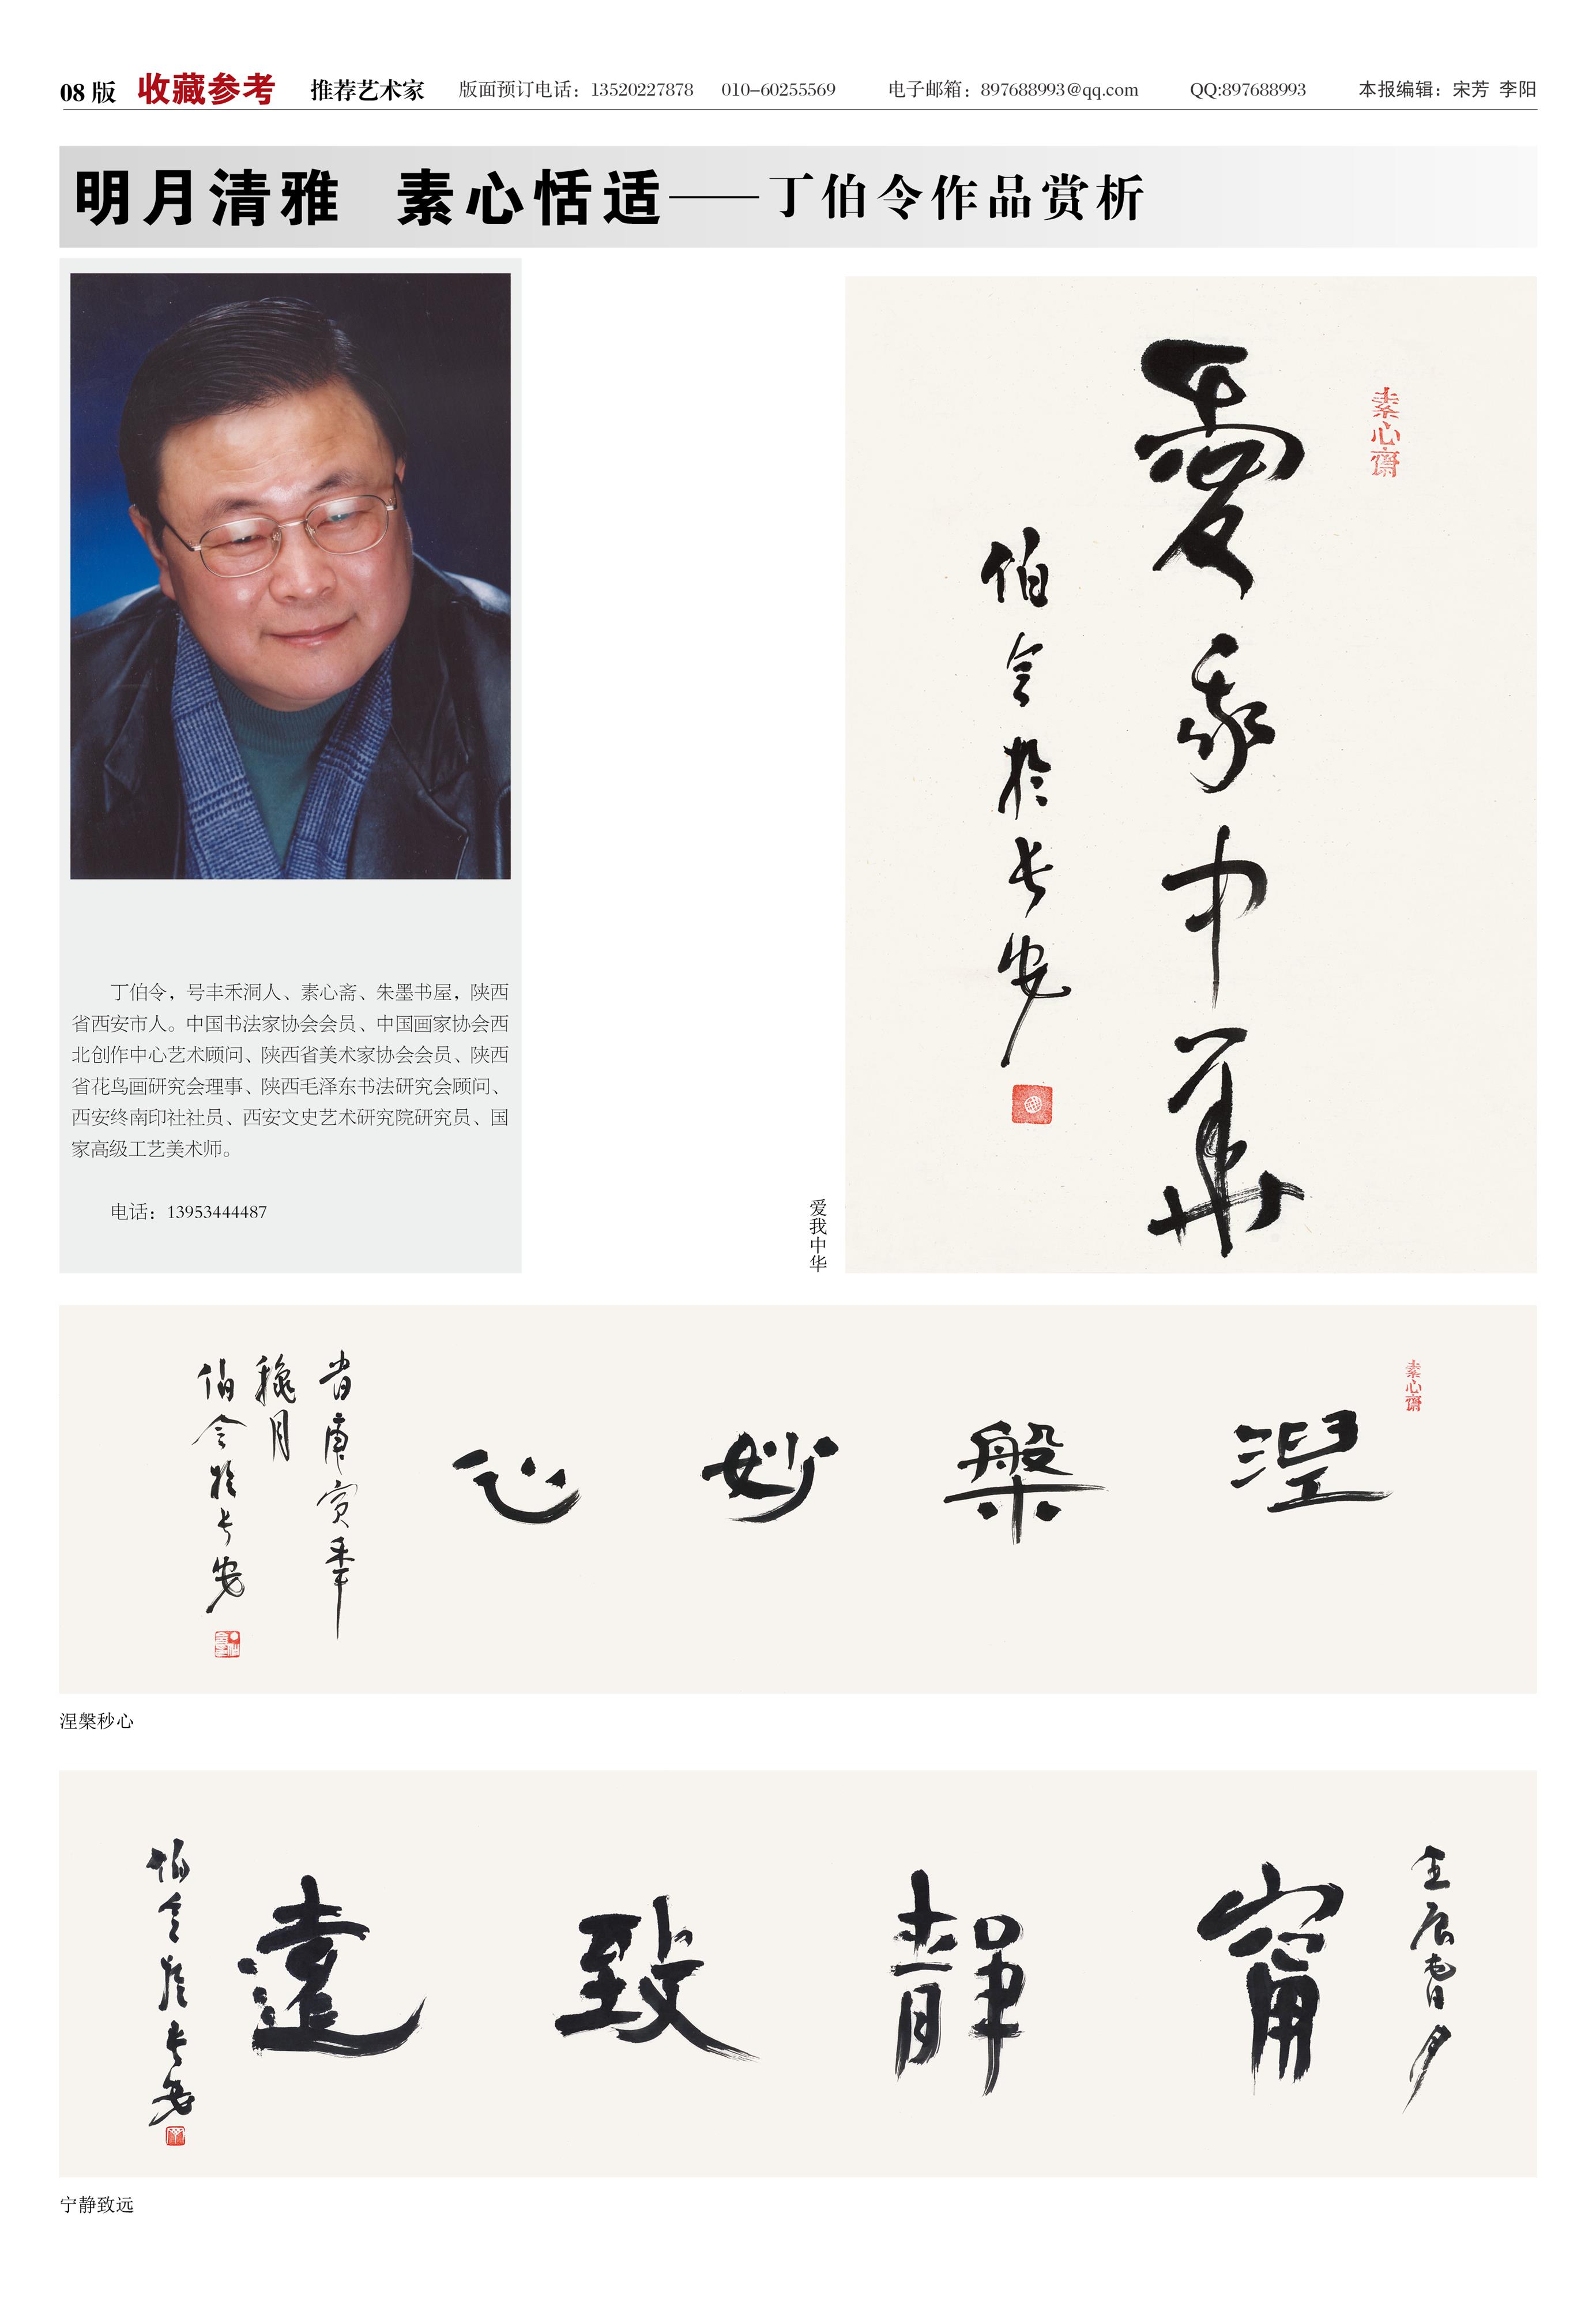 08 版 收藏参考 推荐艺术家 版面预订电话：13520227878 010-60255569 电子邮箱：897688993@qq.com QQ:897688993 本报编辑：宋芳 李阳
明月清雅 素心恬适——丁伯令作品赏析
丁伯令，号丰禾涧人、素心斋、朱墨书屋，陕西
省西安市人。中国书法家协会会员、中国画家协会西
北创作中心艺术顾问、陕西省美术家协会会员、陕西
省花鸟画研究会理事、陕西毛泽东书法研究会顾问、
西安终南印社社员、西安文史艺术研究院研究员、国
家高级工艺美术师。
电话：13953444487
素心齋
愛我中華
伯令於长安
爱我中华
素心齋
涅槃妙心
岁庚寅年
穐月
伯令於长安
涅槃秒心
壬辰春夕
甯靜致遠
伯令於长安
宁静致远